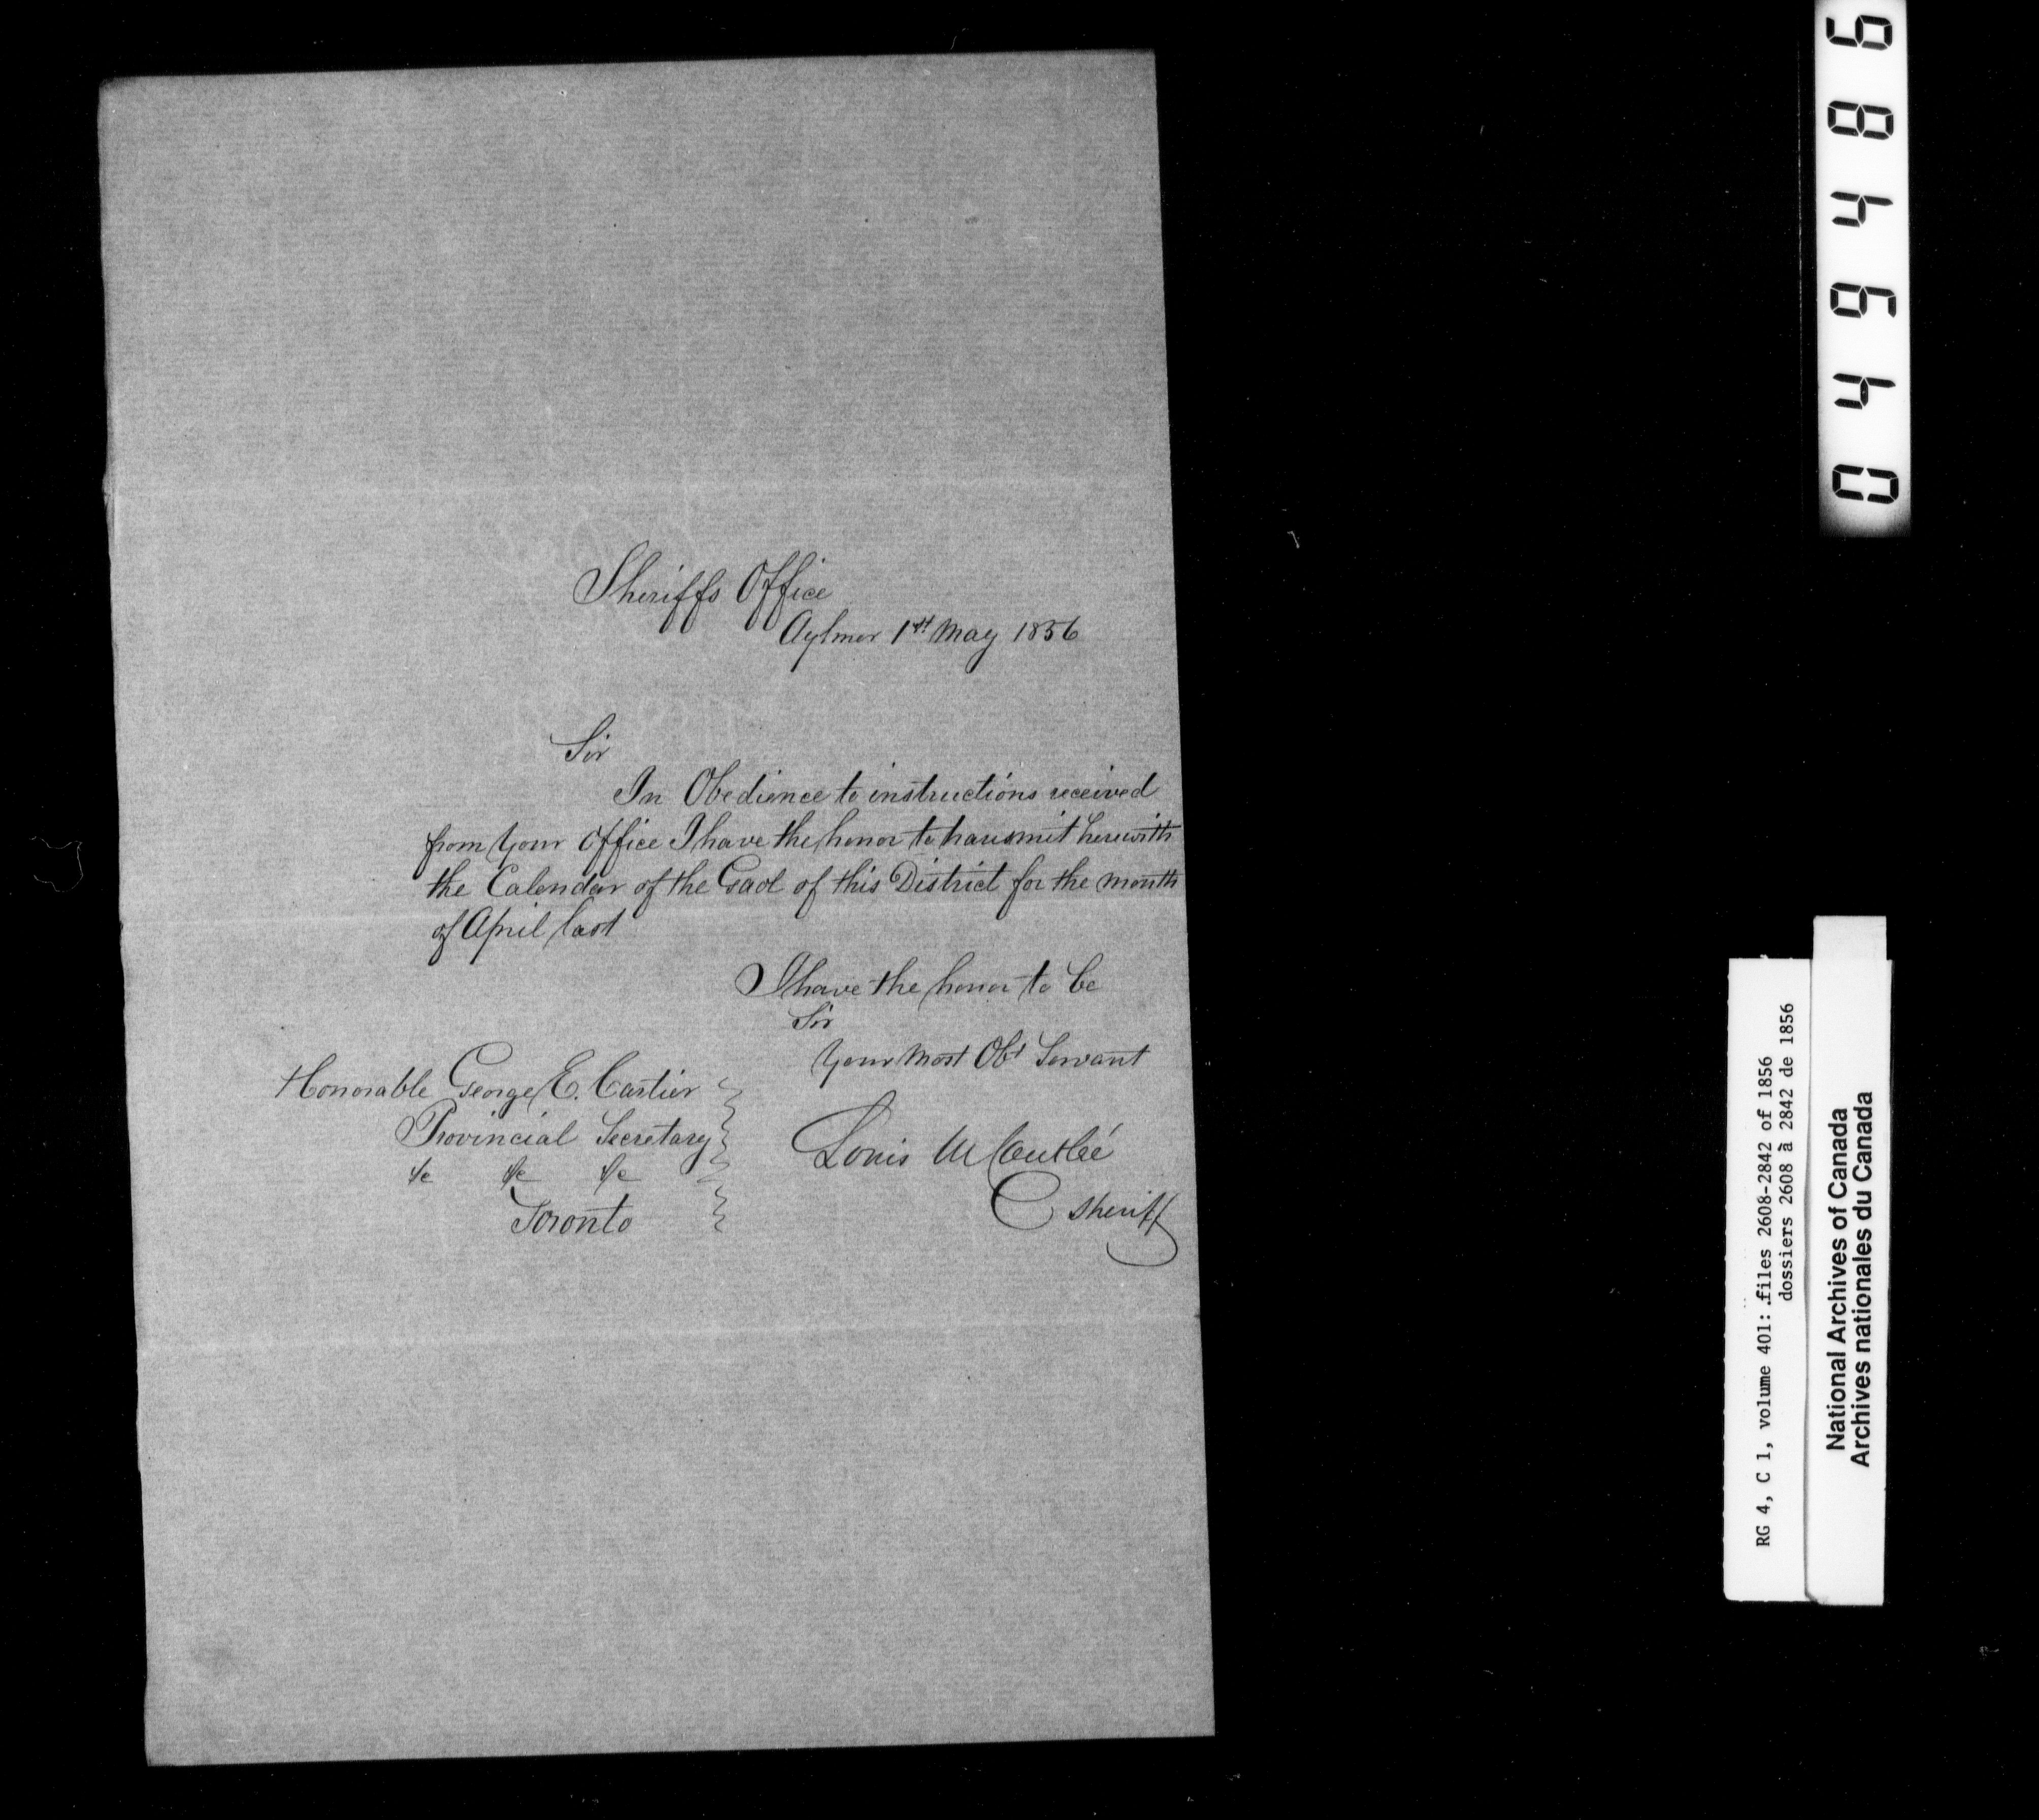 Sheriffs Office
Aylmer 1st May 1856
Sir
In Obedience to instructions received
from Your Office I have the honor to transmit herewith
the Calendar of the Gaol of this District for the month
of April last
I have the honor to be
Sir
Your Most Obt Servant
Honorable George E. Cartier
Provincial Secretary
&c &c &c
Toronto
Louis M Coutlée
Sheriff
049486
RG 4, C 1, volume 401: files 2608-2842 of 1856
dossiers 2608 à 2842 de 1856
National Archives of Canada
Archives nationales du Canada